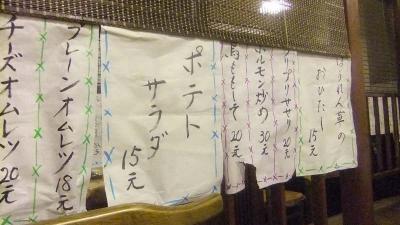 ほうれん草の
おひたし 15元
プリプリサザエ 20元
ホルモン炒め 30元
20元
ポテト
サラダ
15元
プレーンオムレツ 18元
チーズオムレツ 20元